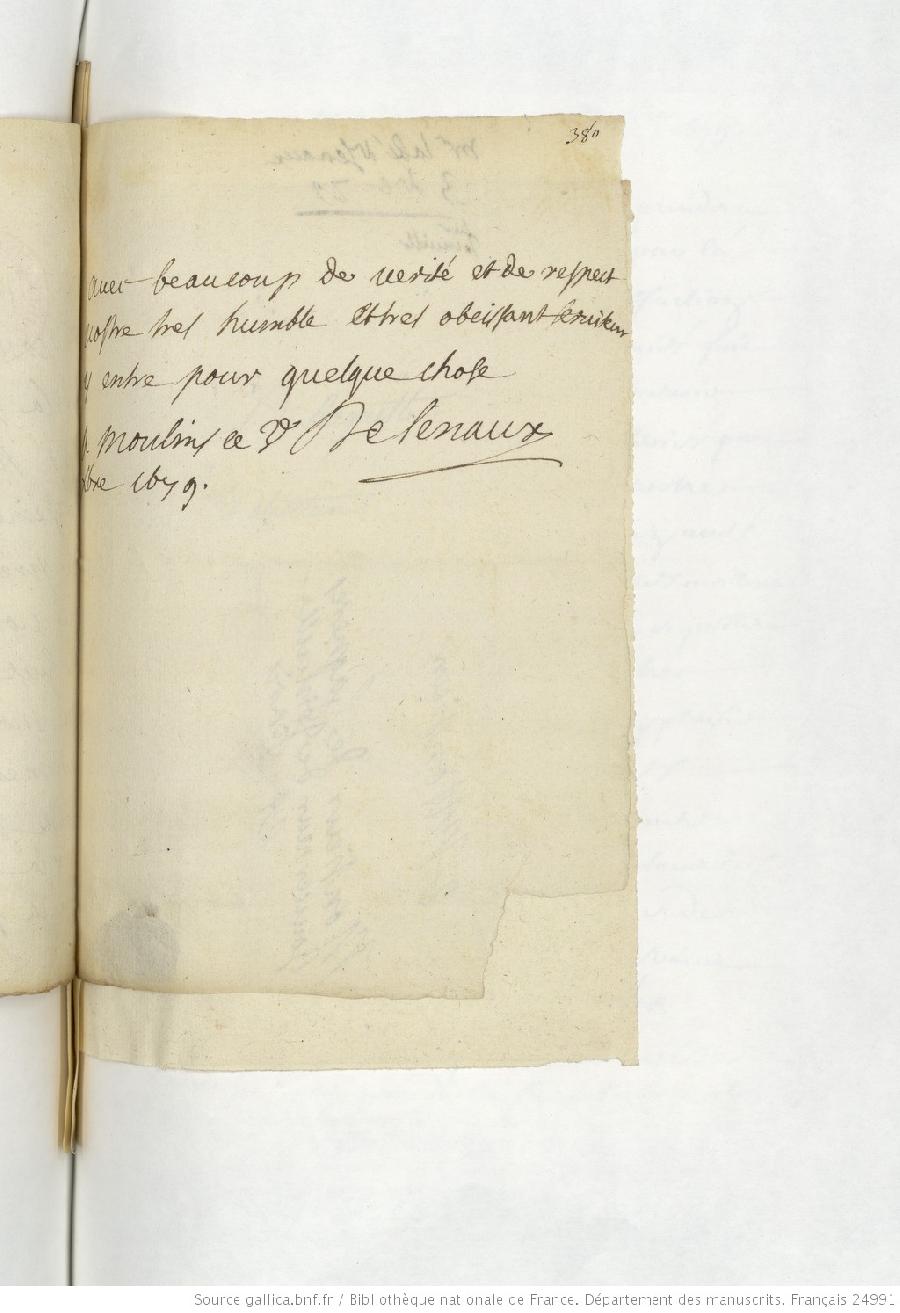 380
avec beaucoup de verité et de respect
vostre tres humble et tres obeissant serviteur
y entre pour quelque chose
a moulins ce De Senaux
bre 1679.
Source gallica.bnf.fr / Bibliothèque nationale de France. Département des manuscrits. Français 24991